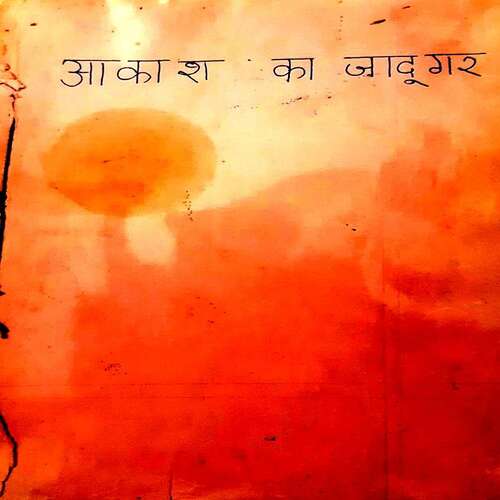 आकाश का जादूगर